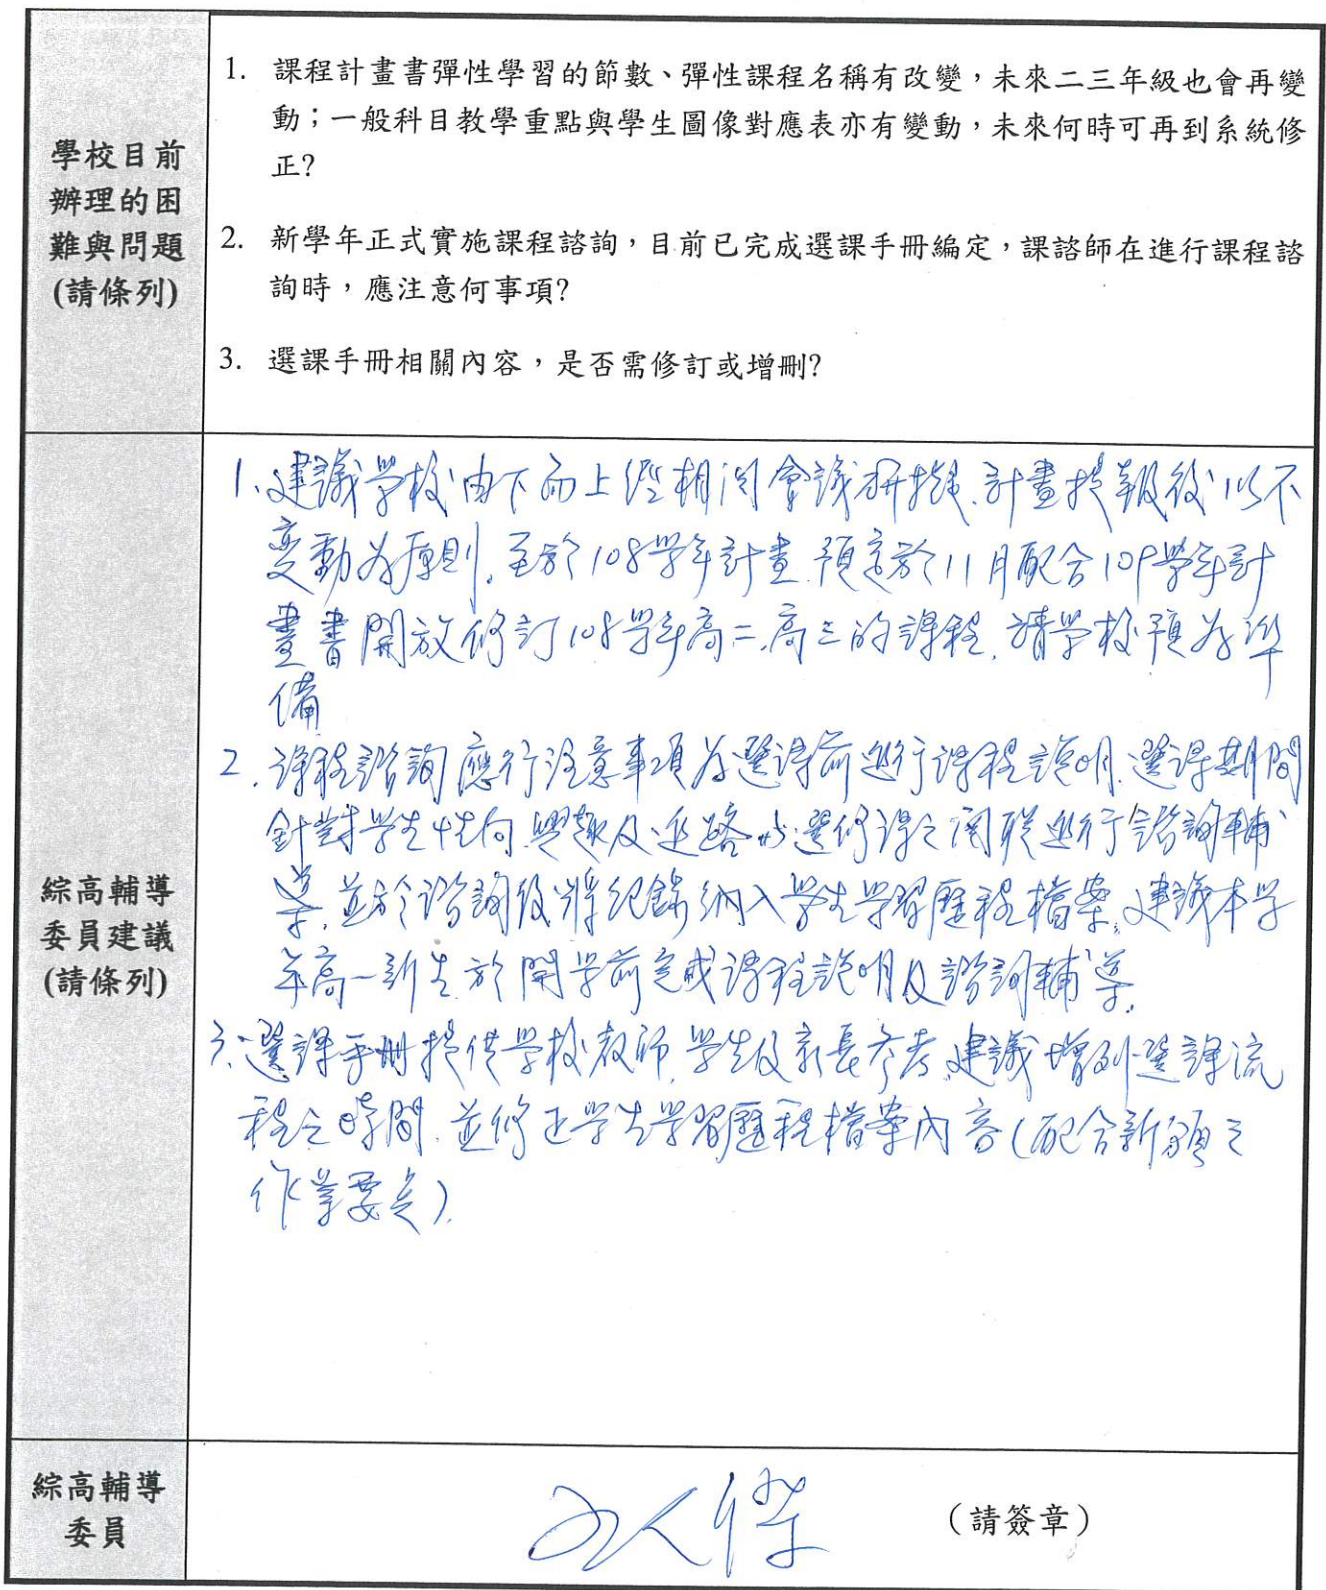 學校目前
辦理的困
難與問題
(請條列)
1. 課程計畫書彈性學習的節數、彈性課程名稱有改變，未來二三年級也會再變
動；一般科目教學重點與學生圖像對應表亦有變動，未來何時可再到系統修
正?
2. 新學年正式實施課程諮詢，目前已完成選課手冊編定，課諮師在進行課程諮
詢時，應注意何事項?
3. 選課手冊相關內容，是否需修訂或增刪?
綜高輔導
委員建議
(請條列)
1.建議學校由下而上經相關會議研擬.計畫提報後以不
變動為原則.至於108學年計畫.預定於11月配合109學年計
畫書開放修訂108學年高二.高三的課程.請學校預為準
備
2.課程諮詢應行注意事項為選課前進行課程說明.選課期間
針對學生性向.興趣及進路與選修課之關聯進行諮詢輔
導.並於諮詢後將紀錄納入學生學習歷程檔案.建議本學
年高一新生於開學前完成課程說明及諮詢輔導.
3.選課手冊提供學校教師.學生及家長參考.建議增列選課流
程之時間.並修正學生學習歷程檔案內容(配合新頒之
作業要點).
綜高輔導
委員
（請簽章）